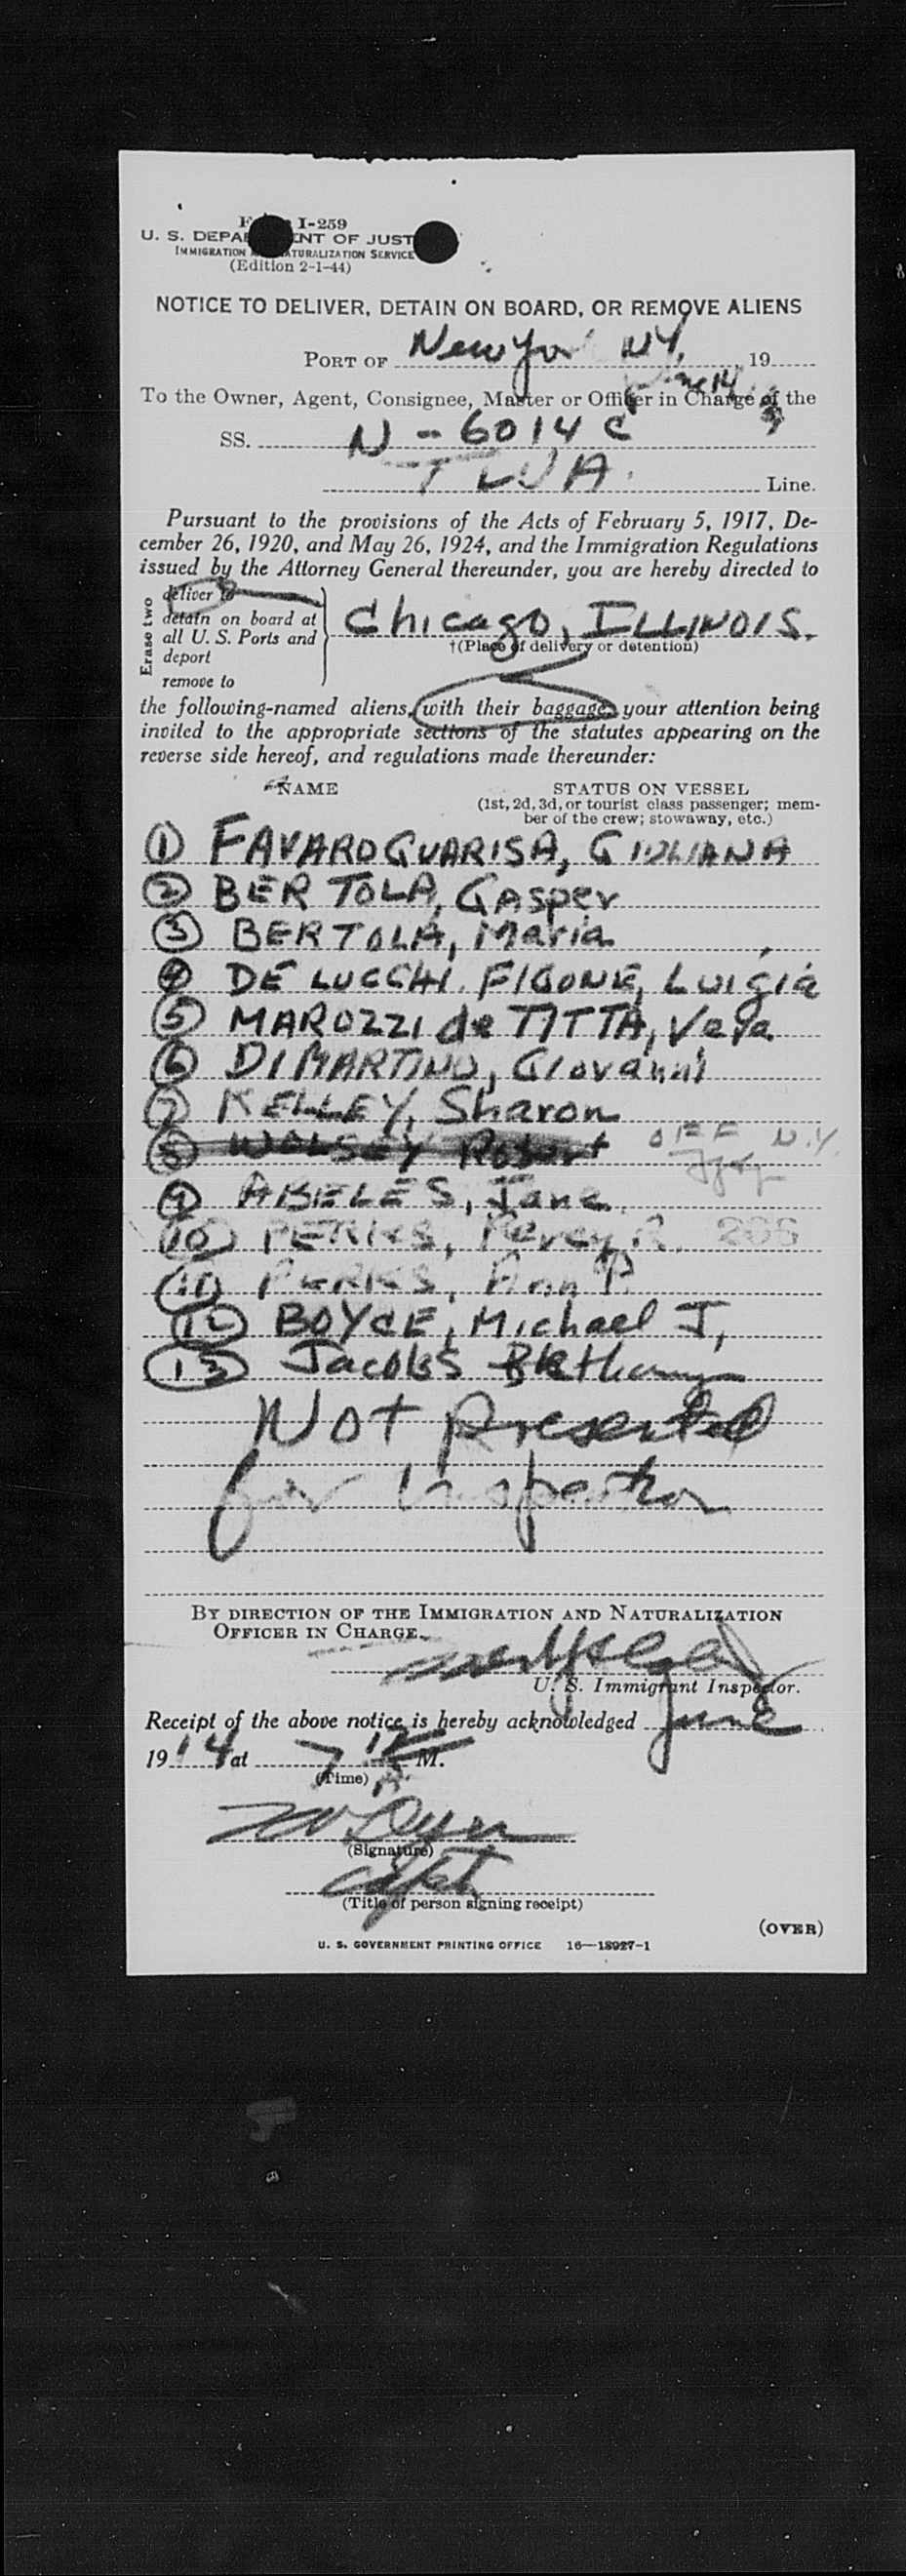 I-259
U. S. DEPA NT OF JUST
IMMIGRATION ATURALIZATION SERVICE
(Edition 2-1-44)
NOTICE TO DELIVER, DETAIN ON BOARD, OR REMOVE ALIENS
PORT OF New Yor N.Y. 19
June 14
To the Owner, Agent, Consignee, Master or Officer in Charge of the
SS. N-6014 C
TWA Line.
Pursuant to the provisions of the Acts of February 5, 1917, De-
cember 26, 1920, and May 26, 1924, and the Immigration Regulations
issued by the Attorney General thereunder, you are hereby directed to
Erase two
deliver to
detain on board at
all U. S. Ports and
deport
remove to
Chicago, ILLINOIS.
†(Place of delivery or detention)
the following-named aliens, with their baggage, your attention being
invited to the appropriate sections of the statutes appearing on the
reverse side hereof, and regulations made thereunder:
NAME STATUS ON VESSEL
(1st, 2d, 3d, or tourist class passenger; mem-
ber of the crew; stowaway, etc.)
1 FAVARO GUARISA, GIULIANA
2 BERTOLA, Gasper
3 BERTOLA, Maria
4 DE LUCCHI FIGONE, Luigia
5 MAROZZI de TITTA, Vera
6 DI MARTINO, Giovanni
7 KELLEY, Sharon
8 WOLSEY Robert OFF N.Y.
9 ABELES, Jane
10 PERKS, Percy R.
11 PERKS, Ann P.
12 BOYCE, Michael J,
13 Jacobs Bethany
Not Presented
for Inspection
BY DIRECTION OF THE IMMIGRATION AND NATURALIZATION
OFFICER IN CHARGE.
U. S. Immigrant Inspector.
Receipt of the above notice is hereby acknowledged June
19 14 at 7 12 M.
(Time) A
(Signature)
Capt
(Title of person signing receipt)
(OVER)
U. S. GOVERNMENT PRINTING OFFICE 16—18927-1